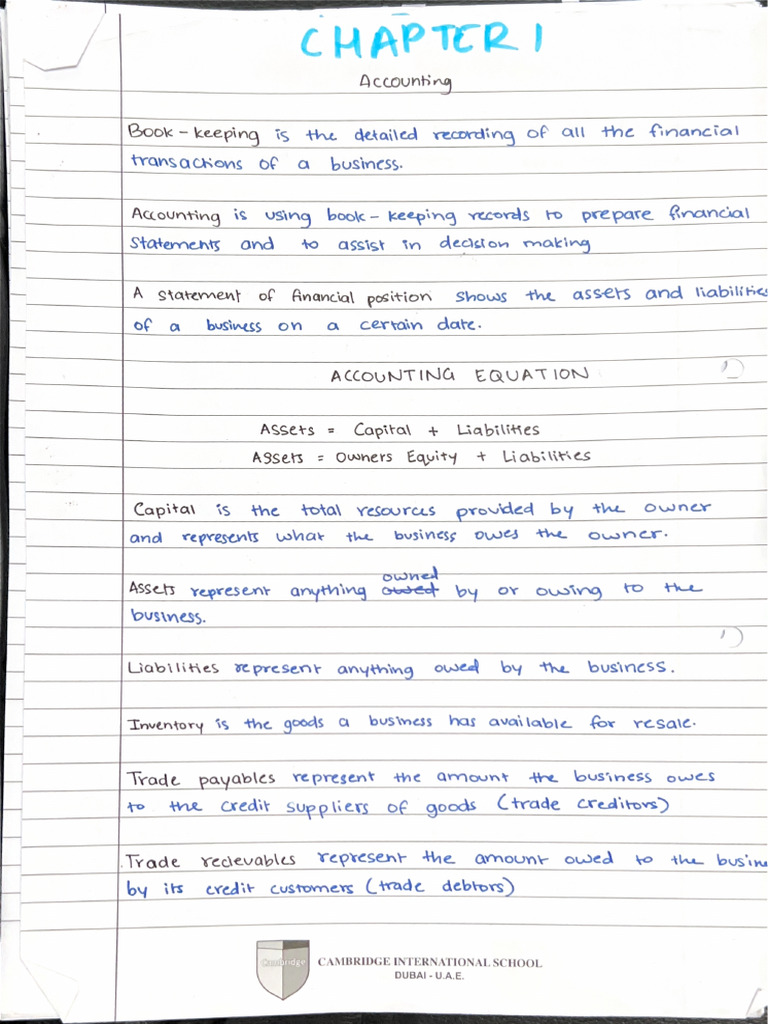 CHAPTER 1
Accounting
Book-keeping is the detailed recording of all the financial
transactions of a business.
Accounting is using book-keeping records to prepare financial
statements and to assist in decision making
A statement of financial position shows the assets and liabilities
of a business on a certain date.
ACCOUNTING EQUATION
Assets = Capital + Liabilities
Assets = Owners Equity + Liabilities
Capital is the total resources provided by the owner
and represents what the business owes the owner.
owned
Assets represent anything owed by or owing to the
business.
Liabilities represent anything owed by the business.
Inventory is the goods a business has available for resale.
Trade payables represent the amount the business owes
to the credit suppliers of goods (trade creditors)
Trade recievables represent the amount owed to the busine
by its credit customers (trade debtors)
Cambridge
CAMBRIDGE INTERNATIONAL SCHOOL
DUBAI - U.A.E.